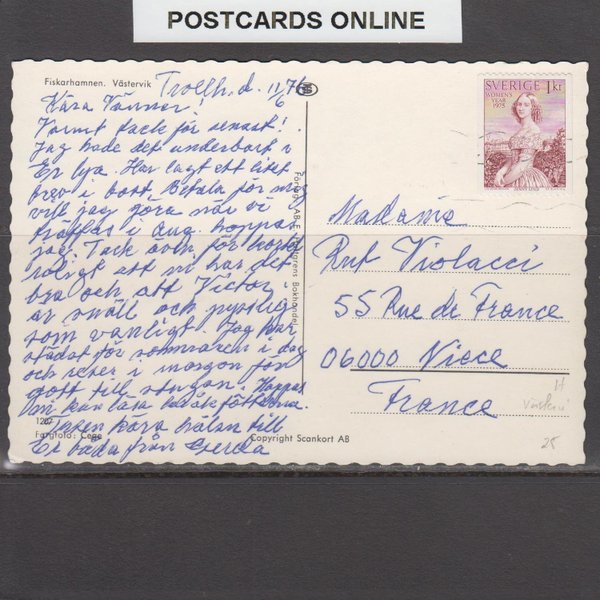 POSTCARDS ONLINE
Fiskarhamnen. Västervik
Trollh. d. 11/6 76
Kära Vänner!
Varmt tack för senast!
Jag hade det underbart i
Er lya. Har lagt ett litet
brev i bort. Betala för mig
vill jag göra när vi
träffas i aug. hoppas
jag. Tack även för
roligt att ni har det
bra och att Victor
är snäll och pysslig
som vanligt. Jag har
städat för sommaren i dag
och reser i morgon för
gott till stugan. Hoppas
Ni kan läsa kråkfötterna.
kära hälsn till
Er båda från Gerda
1267
Färgfoto: Cega
Copyright Scankort AB
SVERIGE 1 kr
WOMEN'S
YEAR
1975
Madame
Rut Violacci
55 Rue de France
06000 Niece
France
H
25